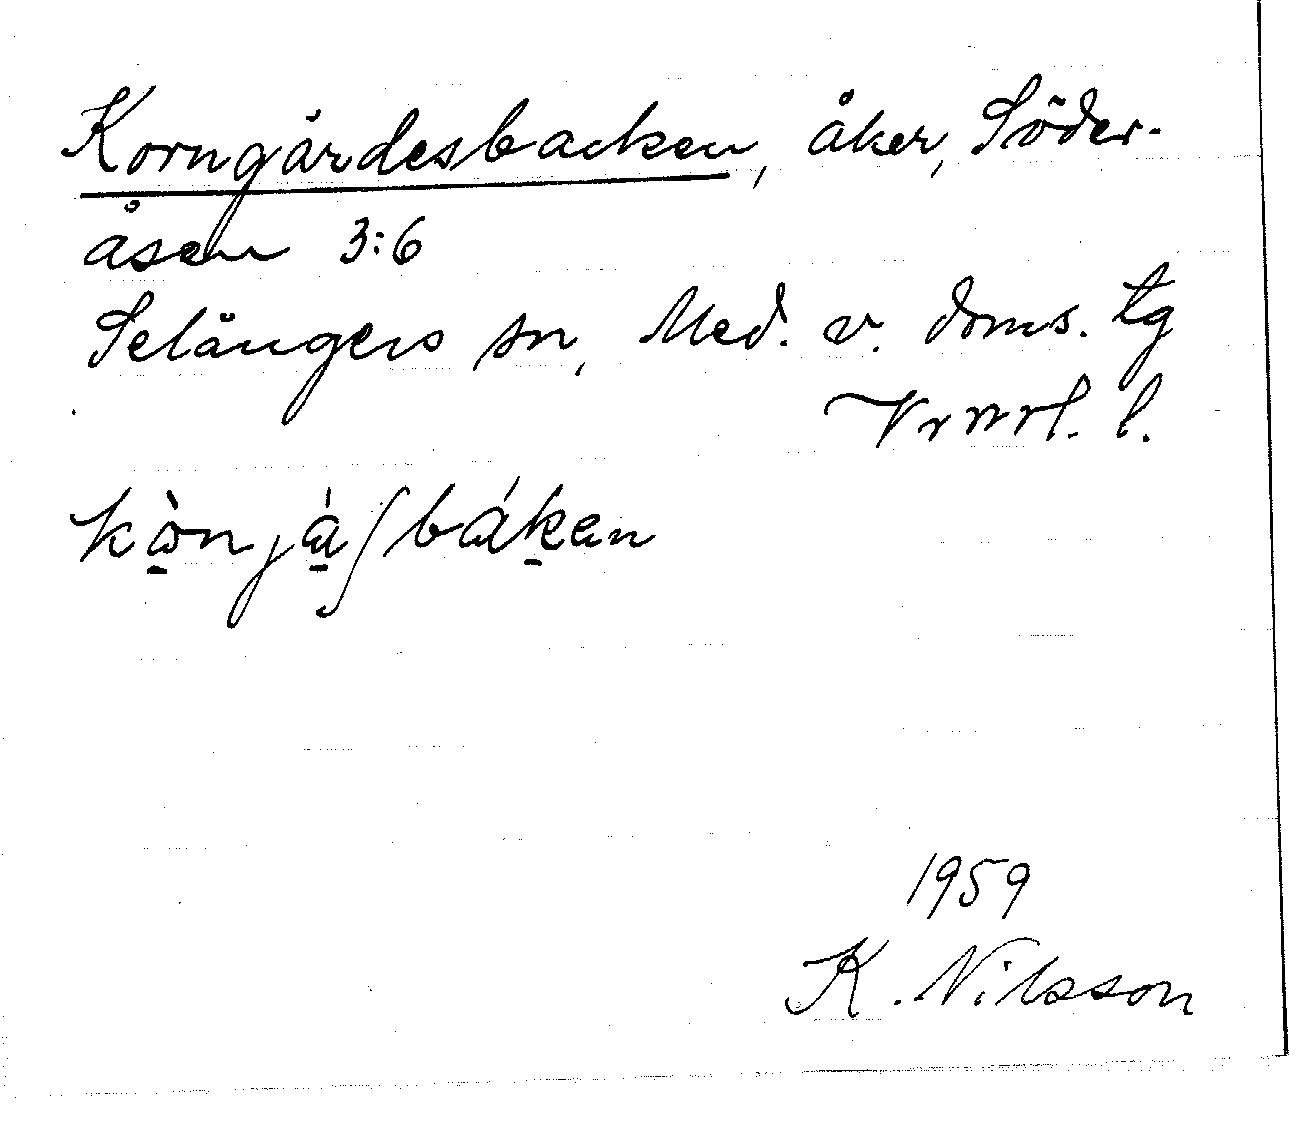 Korngårdesbacken, åker, Söder-
åsen 3:6
Selångers sn, Med. v. doms. tg
Vrnrl. l.
kònjá̱ʃbáḵen
1959
K. Nilsson